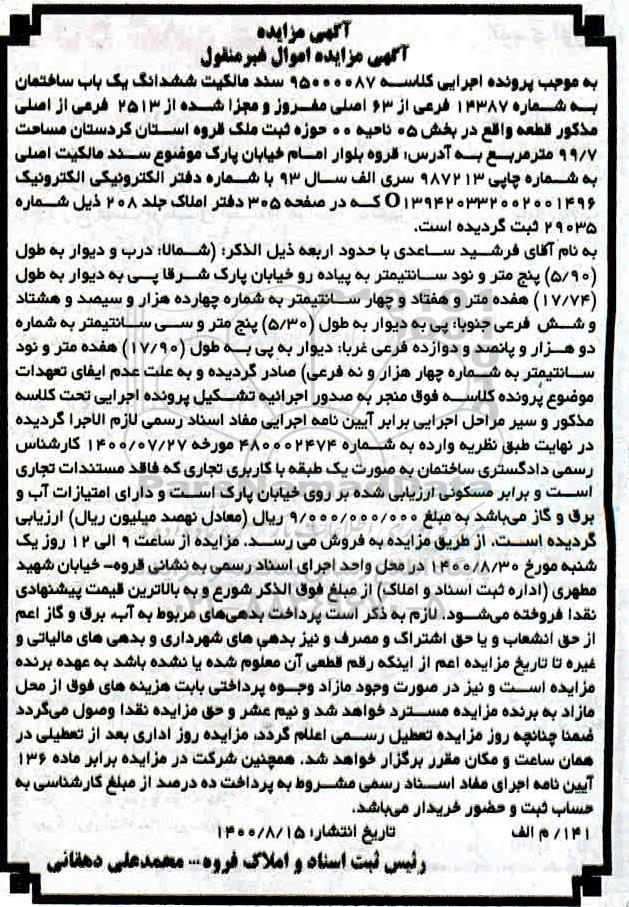 آگهی مزایده
آگهی مزایده اموال غیرمنقول
به موجب پرونده اجرایی کلاسه ۹۵۰۰۰۰۸۷ سند مالکیت ششدانگ یک باب ساختمان
به شماره ۱۴۳۸۷ فرعی از ۶۳ اصلی مفروز و مجزا شده از ۲۵۱۳ فرعی از اصلی
مذکور قطعه واقع در بخش ۰۵ ناحیه ۰۰ حوزه ثبت ملک قروه استان کردستان مساحت
۹۹/۷ مترمربع به آدرس: قروه بلوار امام خیابان پارک موضوع سند مالکیت اصلی
به شماره چاپی ۹۸۷۲۱۳ سری الف سال ۹۳ با شماره دفتر الکترونیکی الکترونیک
O۱۳۹۴۲۰۳۳۲۰۰۲۰۰۱۴۹۶ که در صفحه ۳۰۵ دفتر املاک جلد ۲۰۸ ذیل شماره
۲۹۰۳۵ ثبت گردیده است.
به نام آقای فرشید ساعدی با حدود اربعه ذیل الذکر: (شمالا: درب و دیوار به طول
(۵/۹۰) پنج متر و نود سانتیمتر به پیاده رو خیابان پارک شرقا پی به دیوار به طول
(۱۷/۷۴) هفده متر و هفتاد و چهار سانتیمتر به شماره چهارده هزار و سیصد و هشتاد
و شش فرعی جنوبا: پی به دیوار به طول (۵/۳۰) پنج متر و سی سانتیمتر به شماره
دو هزار و پانصد و دوازده فرعی غربا: دیوار به پی به طول (۱۷/۹۰) هفده متر و نود
سانتیمتر به شماره چهار هزار و نه فرعی) صادر گردیده و به علت عدم ایفای تعهدات
موضوع پرونده کلاسه فوق منجر به صدور اجرائیه تشکیل پرونده اجرایی تحت کلاسه
مذکور و سیر مراحل اجرایی برابر آیین نامه اجرایی مفاد اسناد رسمی لازم الاجرا گردیده
در نهایت طبق نظریه وارده به شماره ۴۸۰۰۰۲۴۷۴ مورخه ۱۴۰۰/۰۷/۲۷ کارشناس
رسمی دادگستری ساختمان به صورت یک طبقه با کاربری تجاری که فاقد مستندات تجاری
است و برابر مسکونی ارزیابی شده بر روی خیابان پارک است و دارای امتیازات آب و
برق و گاز می‌باشد به مبلغ ۹/۰۰۰/۰۰۰/۰۰۰ ریال (معادل نهصد میلیون ریال) ارزیابی
گردیده است. از طریق مزایده به فروش می رسد. مزایده از ساعت ۹ الی ۱۲ روز یک
شنبه مورخ ۱۴۰۰/۸/۳۰ در محل واحد اجرای اسناد رسمی به نشانی قروه- خیابان شهید
مطهری (اداره ثبت اسناد و املاک) از مبلغ فوق الذکر شروع و به بالاترین قیمت پیشنهادی
نقدا فروخته می‌شود. لازم به ذکر است پرداخت بدهی‌های مربوط به آب، برق و گاز اعم
از حق انشعاب و یا حق اشتراک و مصرف و نیز بدهی های شهرداری و بدهی های مالیاتی و
غیره تا تاریخ مزایده اعم از اینکه رقم قطعی آن معلوم شده یا نشده باشد به عهده برنده
مزایده است و نیز در صورت وجود مازاد وجوه پرداختی بابت هزینه های فوق از محل
مازاد به برنده مزایده مسترد خواهد شد و نیم عشر و حق مزایده نقدا وصول می‌گردد
ضمنا چنانچه روز مزایده تعطیل رسمی اعلام گردد، مزایده روز اداری بعد از تعطیلی در
همان ساعت و مکان مقرر برگزار خواهد شد. همچنین شرکت در مزایده برابر ماده ۱۳۶
آیین نامه اجرای مفاد اسناد رسمی مشروط به پرداخت ده درصد از مبلغ کارشناسی به
حساب ثبت و حضور خریدار می‌باشد.
۱۴۱/ م الف تاریخ انتشار: ۱۴۰۰/۸/۱۵
رئیس ثبت اسناد و املاک قروه... محمدعلی دهقانی
ParsNamadData